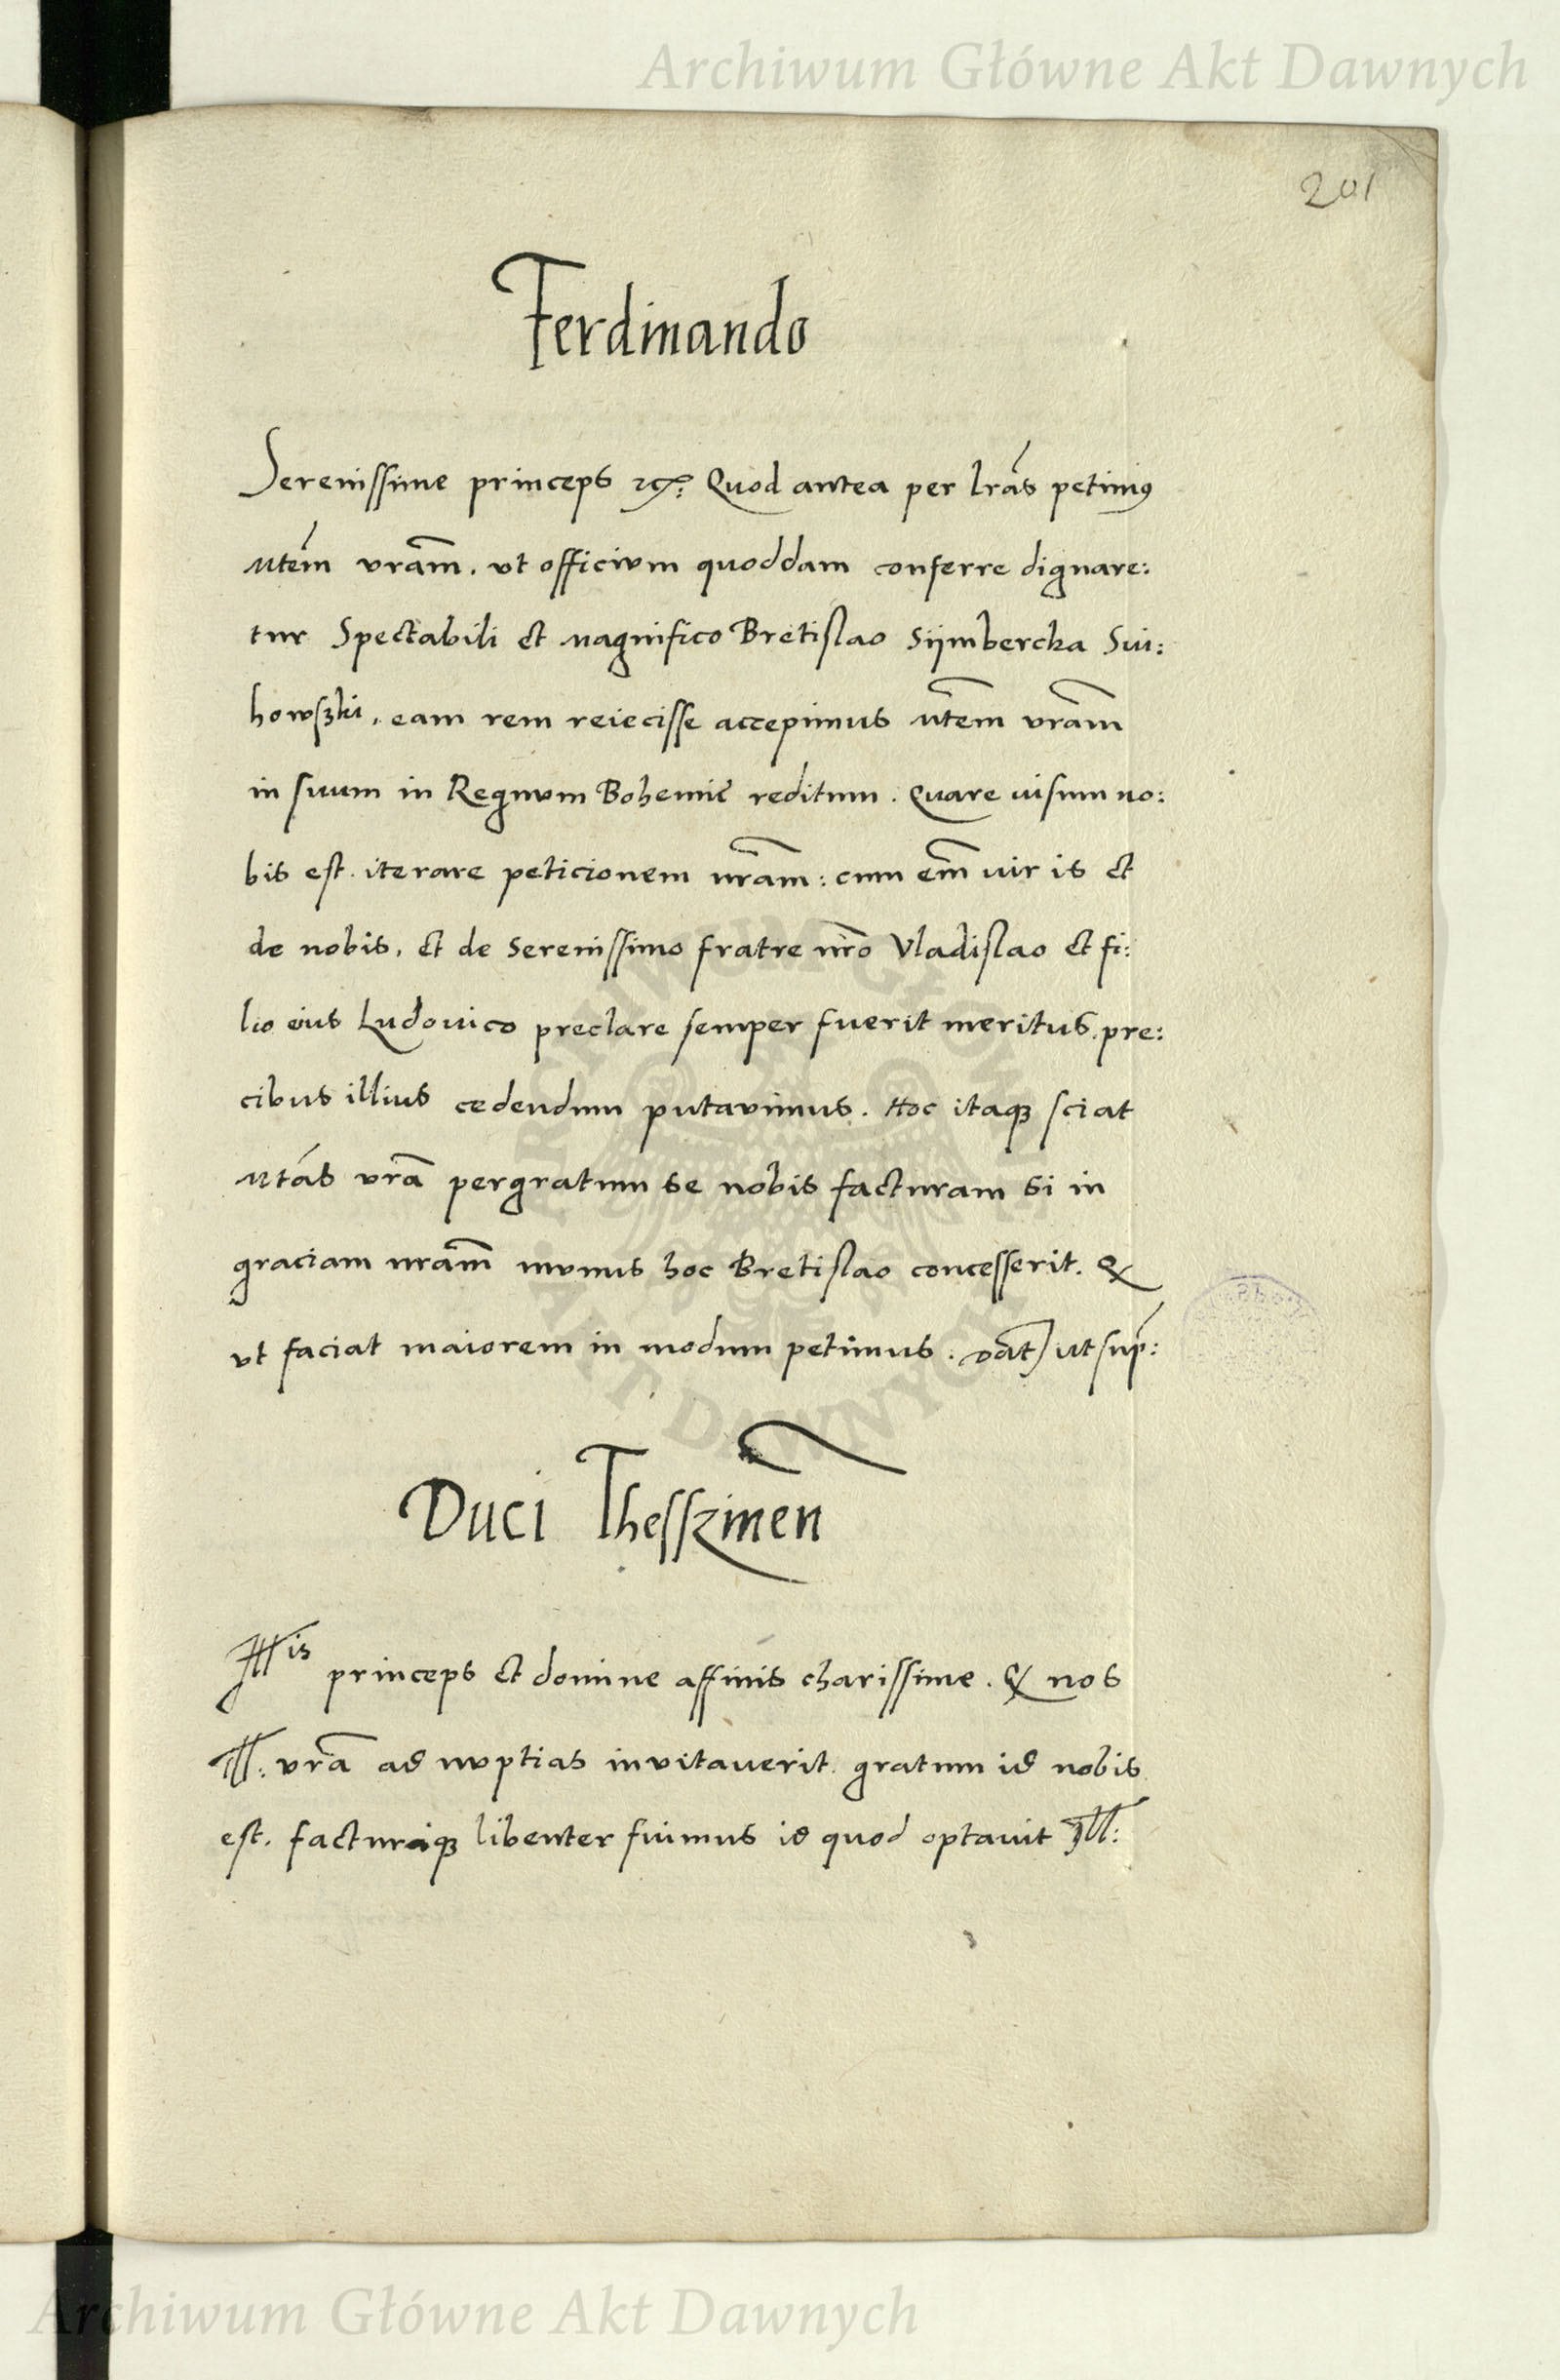 Archiwum Główne Akt Dawnych
201
Ferdinando
Serenissime princeps etc: Quod antea per lras petimus
Mtem vram. vt officium quoddam conferre dignare:
tur Spectabili et Magnifico Bretislao Sijmbercka Swi:
howszki, eam rem reiecisse accepimus Mtem vram
in suum in Regnum Bohemie reditum. Quare uisum no:
bis est. iterare peticionem nram: cum em uir is et
de nobis, et de Serenissimo fratre nro Vladislao et fi:
lio eius Ludouico preclare semper fuerit meritus. pre:
cibus illius cedendum putavimus. Hoc itaq sciat
Mtas vra pergratum se nobis facturam si in
graciam nram munus hoc Bretislao concesserit. Q
vt faciat maiorem in modum petimus. Dat ut sup:
Duci Thesszinen
Illis princeps et domine affinis charissime. Q nos
Ill: vra ad nuptias invitauerit. gratum id nobis
est. facturiq libenter fuimus id quod optauit Ill:
ARCHIWUM GŁÓWNE AKT DAWNYCH
Archiwum Główne Akt Dawnych